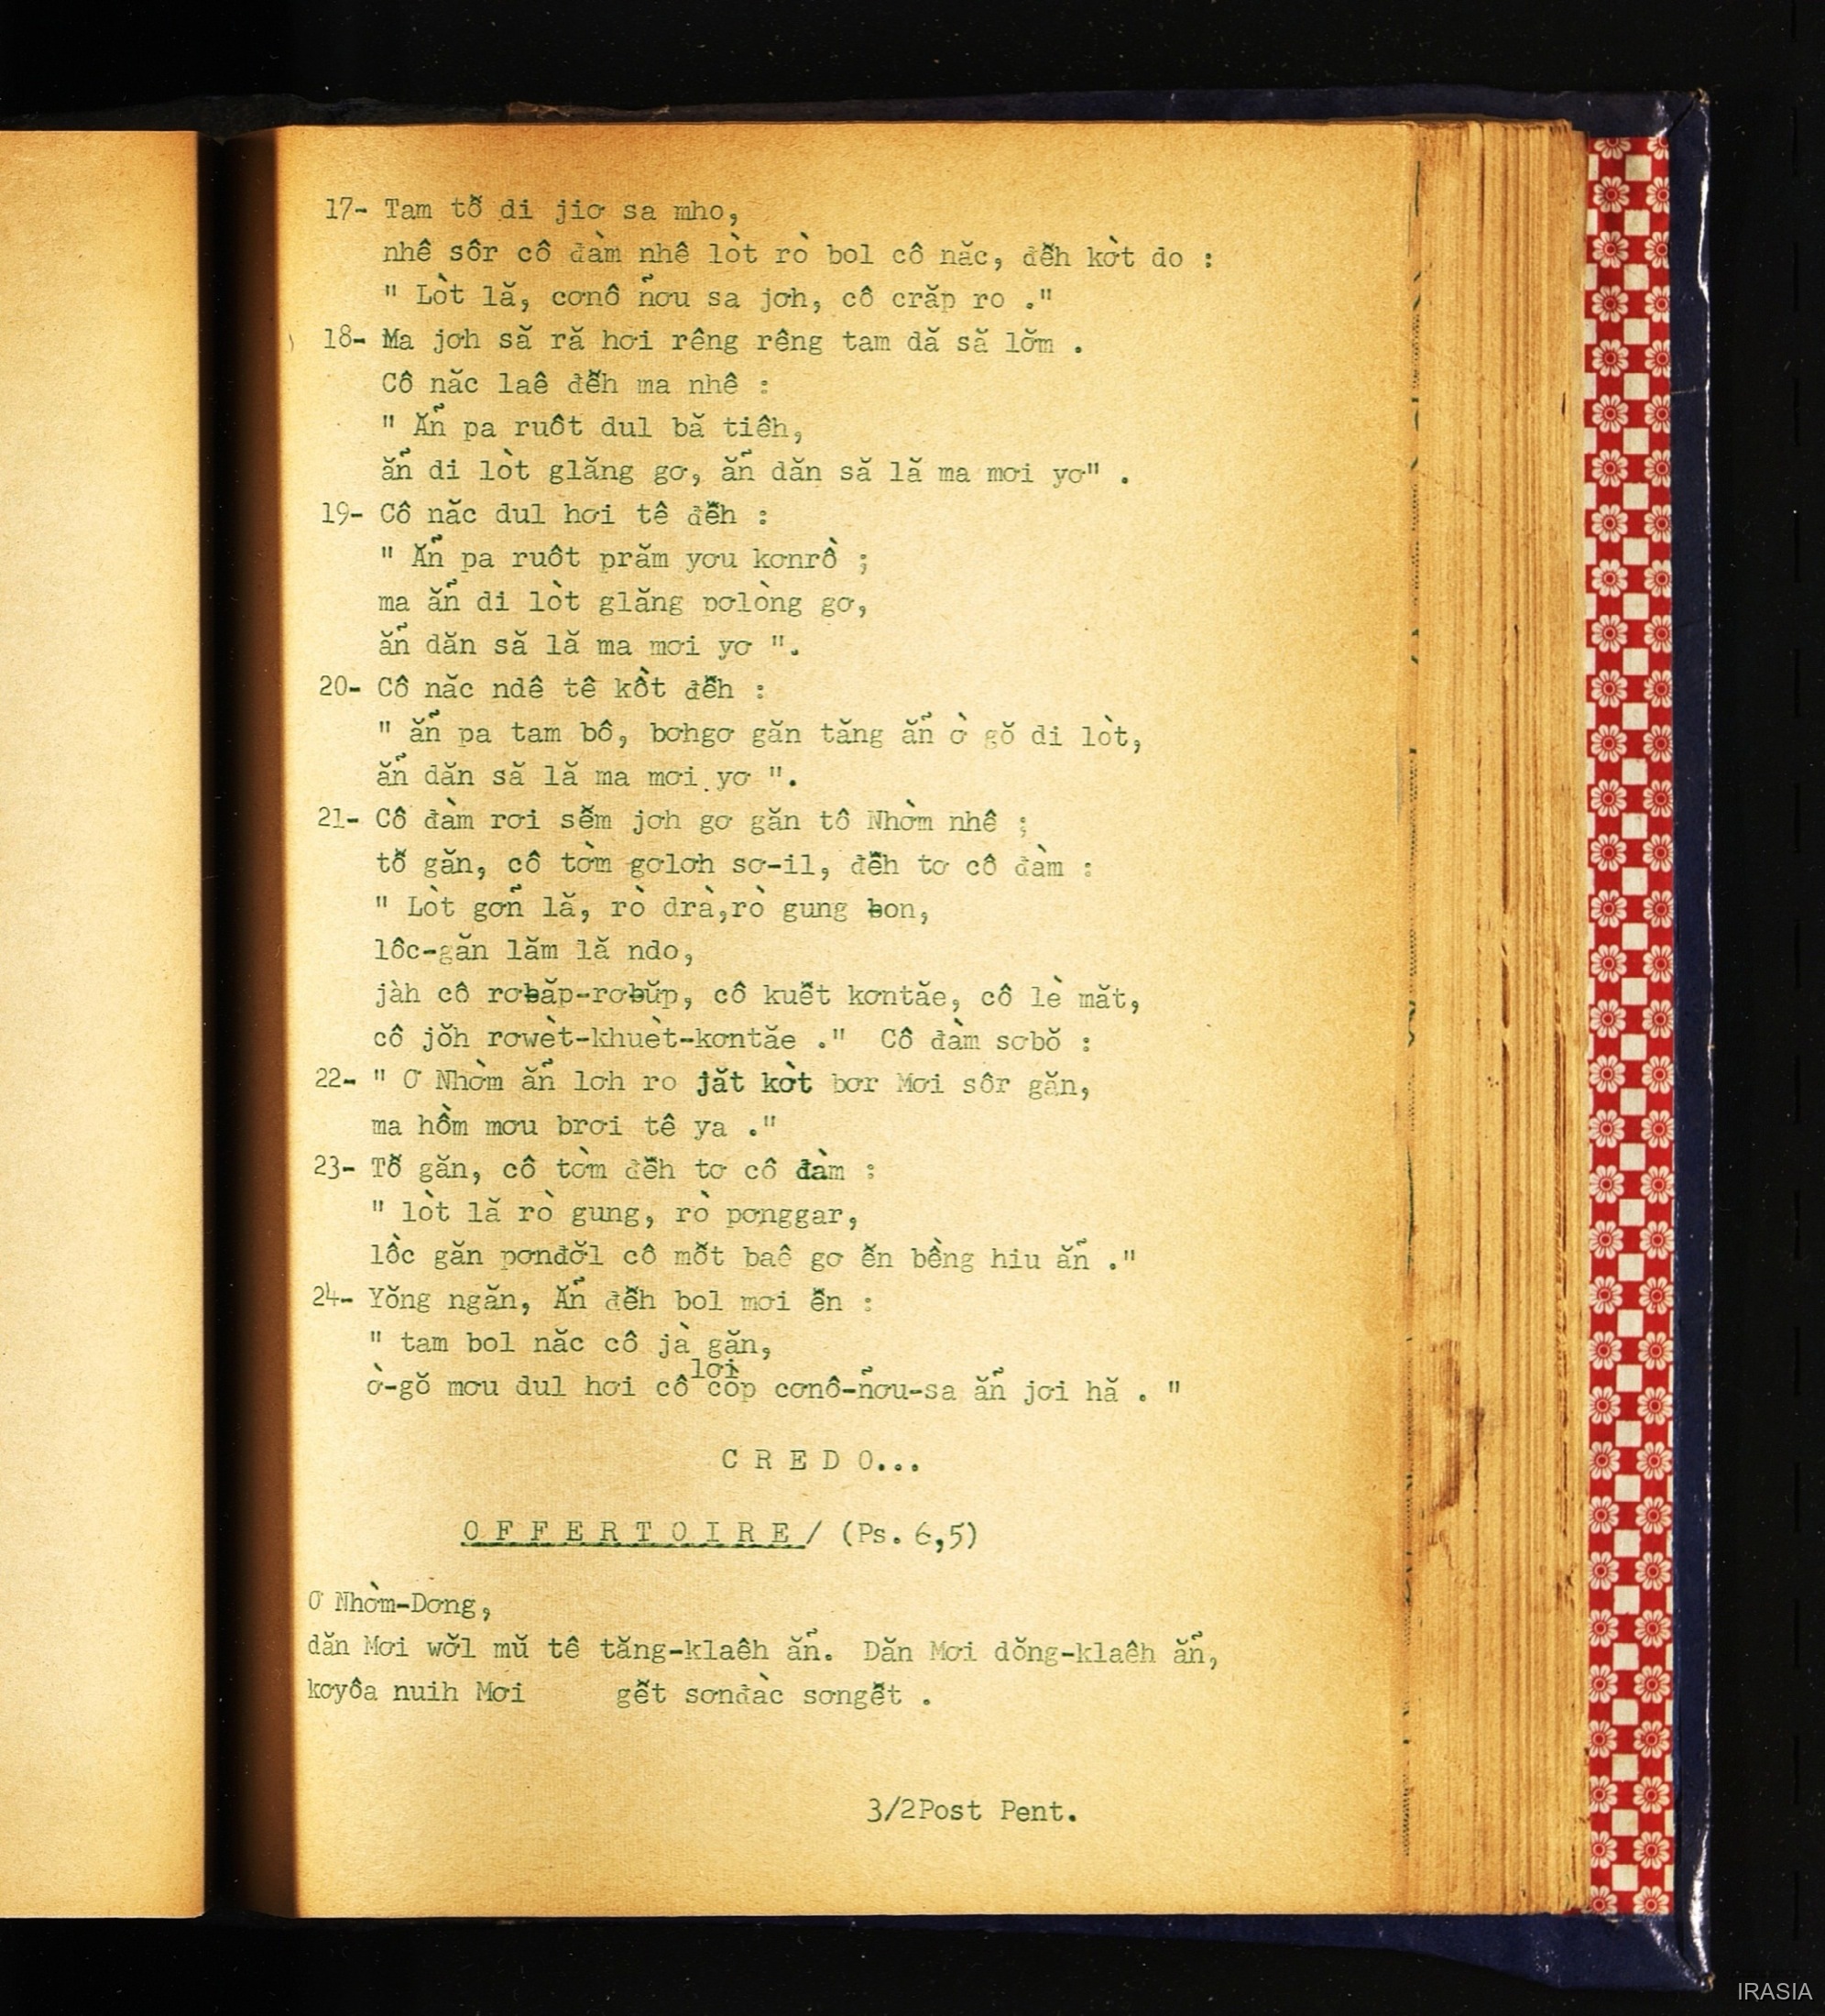 17- Tam tô̆ di jiơ sa mho,
nhê sôr cô đàm nhê lòt rò bol cô năc, đê̆h kờt do :
" Lòt lă, cơnô n̆ơu sa jơh, cô crăp ro ."
18- Ma jơh să ră hơi rêng rêng tam dă să lơ̆m .
Cô năc laê đê̆h ma nhê :
" Ăn̆ pa ruôt dul bă tiêh,
ăn̆ di lòt glăng gơ, ăn̆ dăn să lă ma mơi yơ" .
19- Cô năc dul hơi tê đê̆h :
" Ăn̆ pa ruôt prăm yơu kơnrồ ;
ma ăn̆ di lòt glăng pơlòng gơ,
ăn̆ dăn să lă ma mơi yơ ".
20- Cô năc ndê tê kồt đê̆h :
" ăn̆ pa tam bô, bơhgơ găn tăng ăn̆ ờ gŏ di lòt,
ăn̆ dăn să lă ma mơi yơ ".
21- Cô đàm rơi sê̆m jơh gơ găn tô Nhờm nhê ;
tô̆ găn, cô tờm gơlơh sơ-il, đê̆h tơ cô đàm :
" Lòt gơn̆ lă, rò drà,rò gung ƀon,
lôc-găn lăm lă ndo,
jàh cô rơƀăp-rơƀŭp, cô kuê̆t kơntăe, cô lè măt,
cô jŏh rơwèt-khuèt-kơntăe ."  Cô đàm sơbŏ :
22- " Ơ Nhờm ăn̆ lơh ro jăt kờt bơr Mơi sôr găn,
ma hồm mơu brơi tê ya ."
23- Tô̆ găn, cô tờm đê̆h tơ cô đàm :
" lòt lă rò gung, rò pơnggar,
lồc găn pơnđơ̆l cô mô̆t baê gơ ê̆n bềng hiu ăn̆ ."
24- Yŏng ngăn, Ăn̆ đê̆h bol mơi ê̆n :
" tam bol năc cô jà găn,
lơi
ờ-gŏ mơu dul hơi cô còp cơnô-n̆ơu-sa ăn̆ jơi hă . "
C R E D O...
O F F E R T O I R E / (Ps. 6,5)
Ơ Nhờm-Dơng,
dăn Mơi wơ̆l mŭ tê tăng-klaêh ăn̆. Dăn Mơi dŏng-klaêh ăn̆,
kơyôa nuih Mơi gê̆t sơnđàc sơngê̆t .
3/2Post Pent.
IRASIA